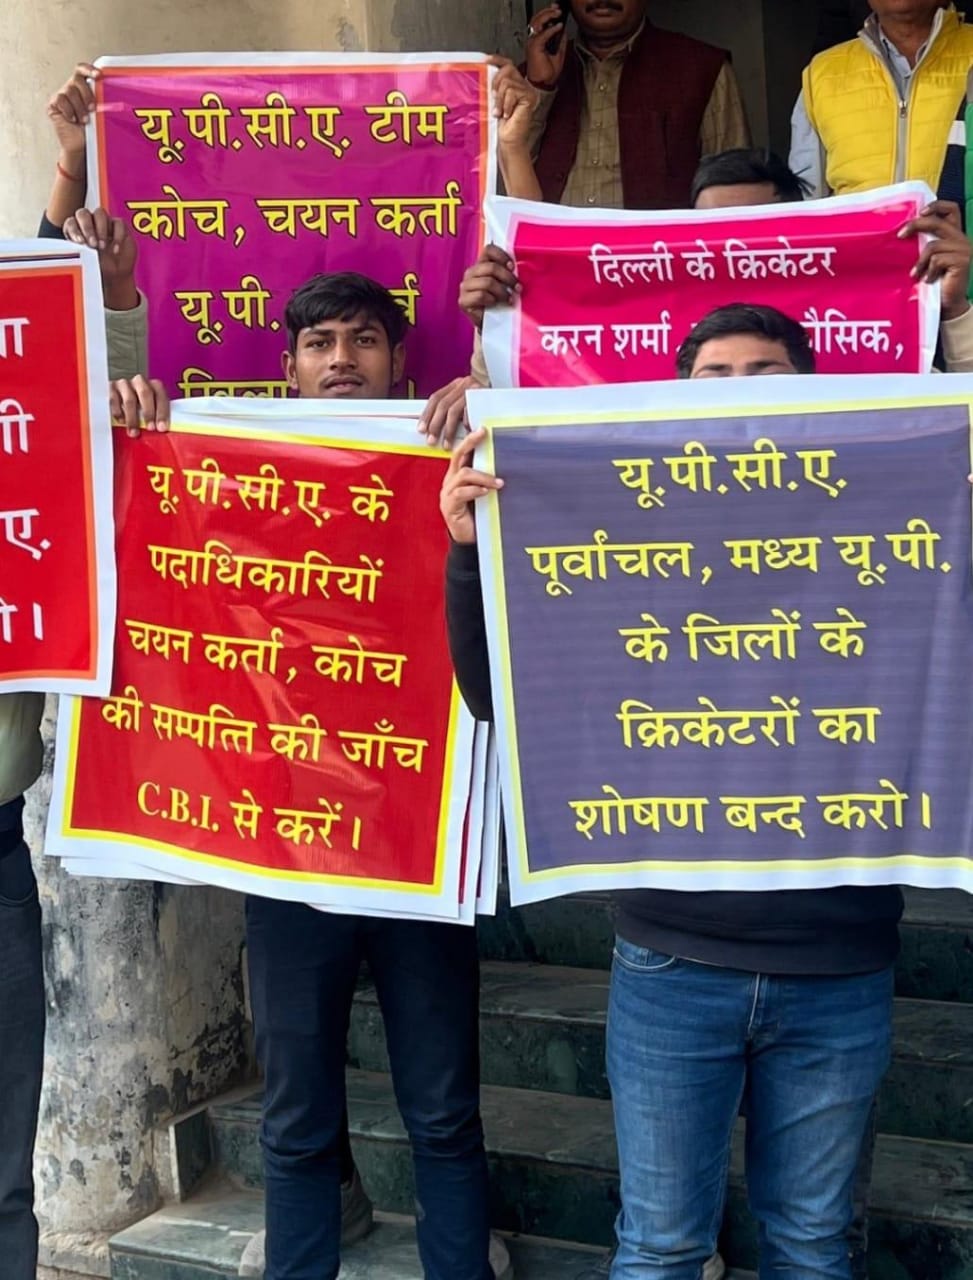 यू.पी.सी.ए. टीम
कोच, चयन कर्ता
यू.पी.
दिल्ली के क्रिकेटर
करन शर्मा
ए.
यू.पी.सी.ए. के
पदाधिकारियों
चयन कर्ता, कोच
की सम्पत्ति की जाँच
C.B.I. से करें।
यू.पी.सी.ए.
पूर्वांचल, मध्य यू.पी.
के जिलों के
क्रिकेटरों का
शोषण बन्द करो।